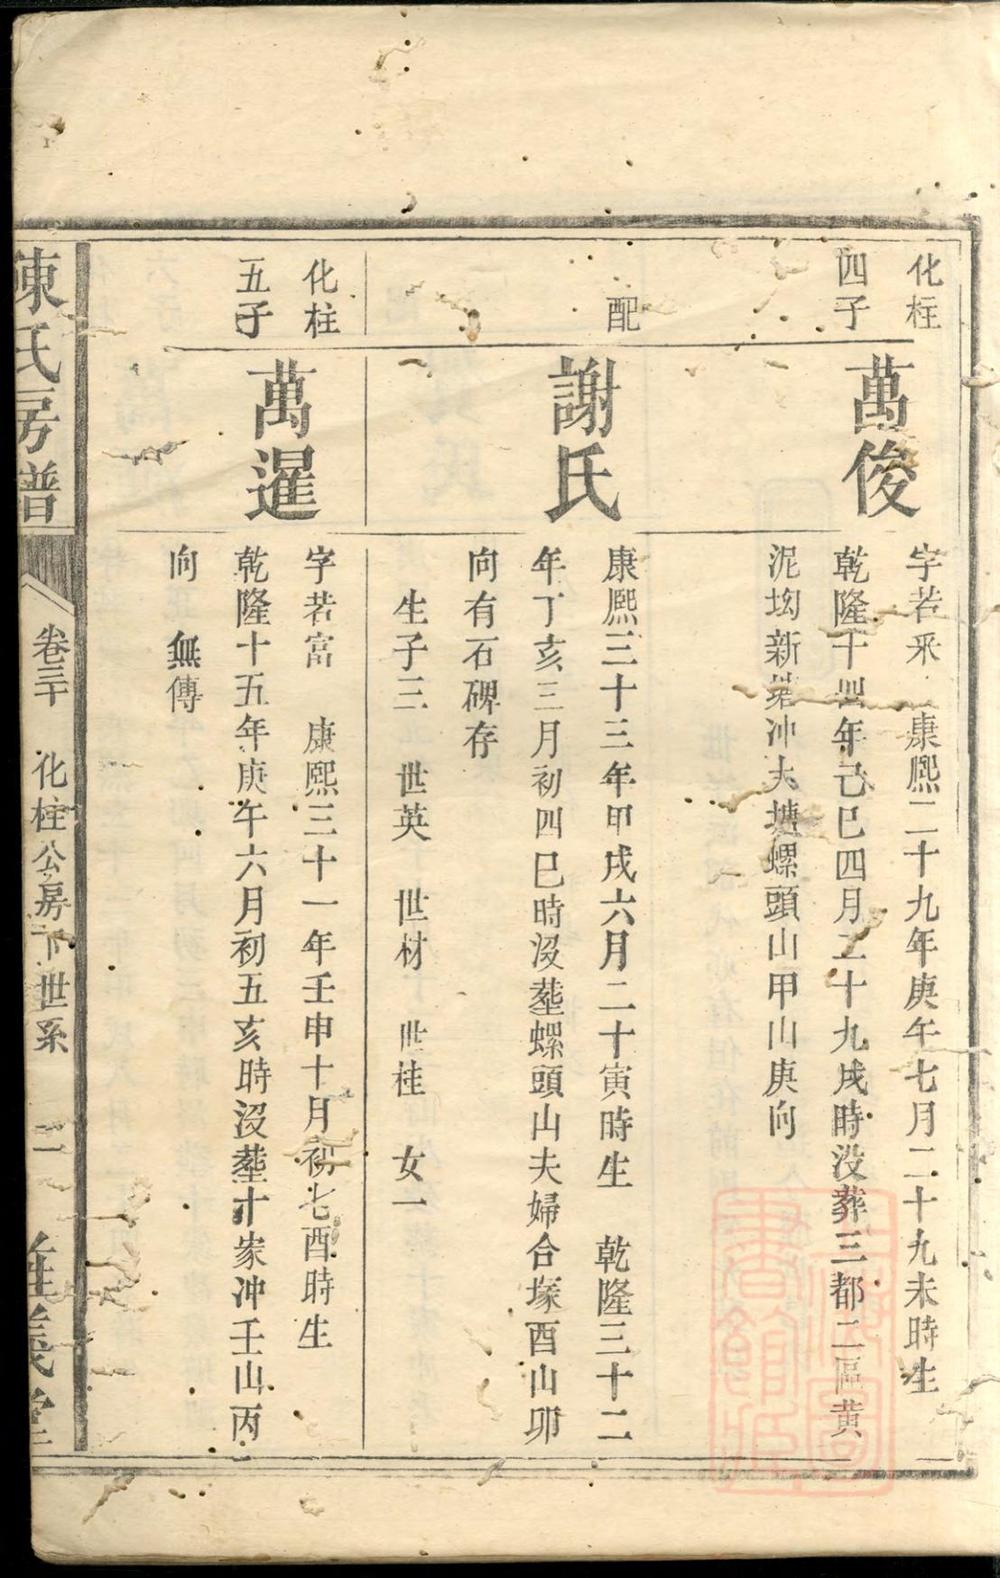 化柱
四子
萬俊
字若釆 康熙二十九年庚午七月二十九未時生
乾隆十四年己巳四月二十九戌時没葬三都二區黄
泥坳新 冲大塘螺頭山甲山庚向
配
謝氏
康熙三十三年甲戌六月二十寅時生 乾隆三十二
年丁亥三月初四巳時没塟螺頭山夫婦合塚酉山卯
向有石碑存
生子三 世英 世材 世桂 女一
化柱
五子
萬暹
字若富 康熙三十一年壬申十月初七酉時生
乾隆十五年庚午六月初五亥時没塟十家冲壬山丙
向 無傳
陳氏房譜
卷三十 化柱公房下世系 二
義堂